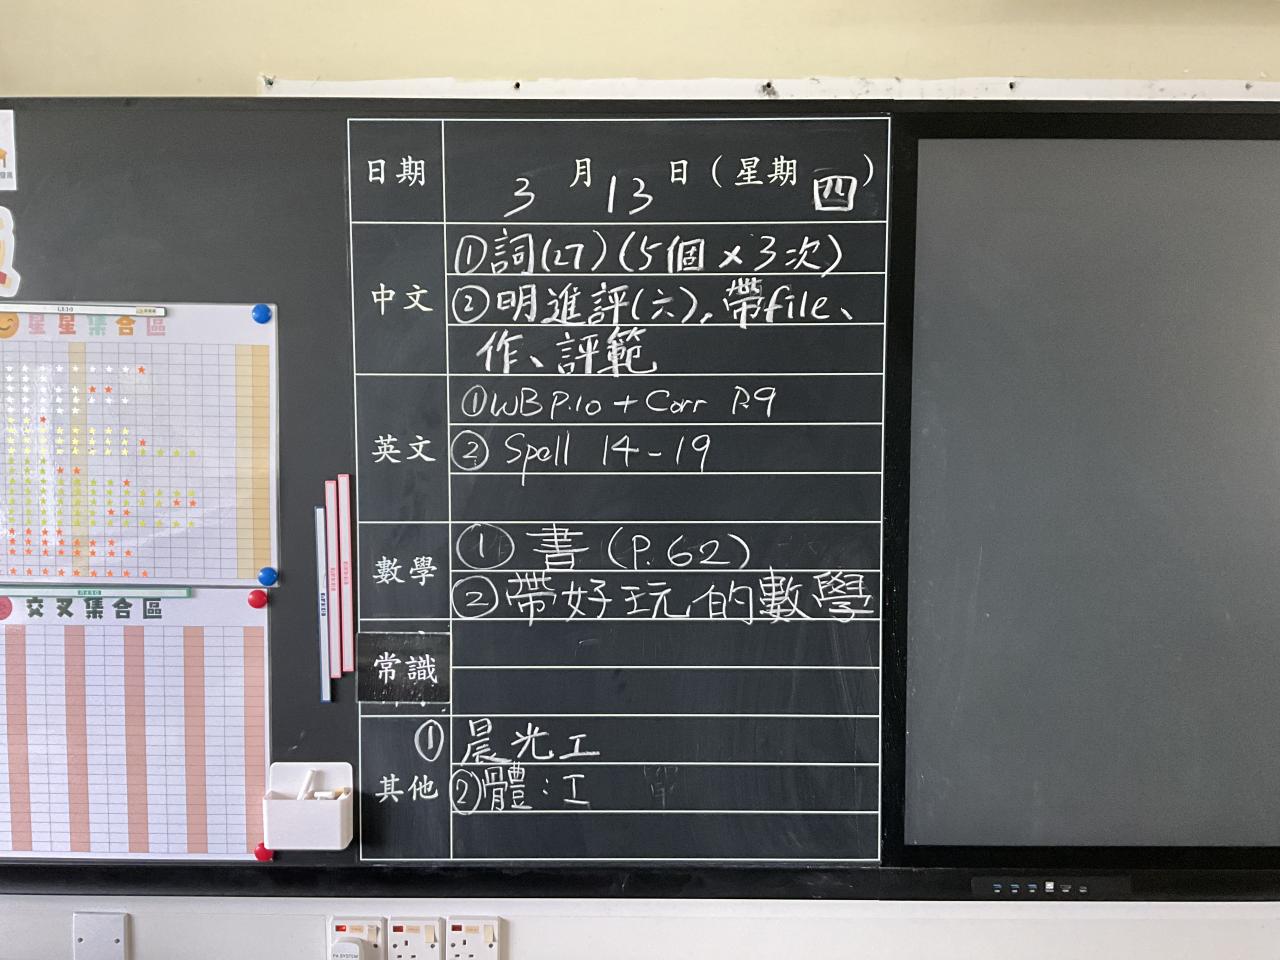 日期 3月13日(星期四)
中文
①詞(27)(5個×3次)
②明進評(六), 帶file、
作、評範
英文
①WB P.10 + Corr P.9
② Spell 14-19
數學
① 書 (P.62)
②帶好玩的數學
常識
其他
① 晨光工
②體:工
星星集合區
交叉集合區